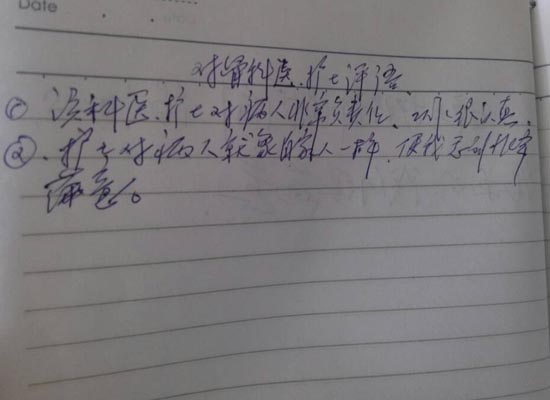 Date
对骨科医、护士评语
① 该科医、护士对病人非常负责任、工作很认真。
②、护士对病人就象自家人一样,使我感到非常
满意。